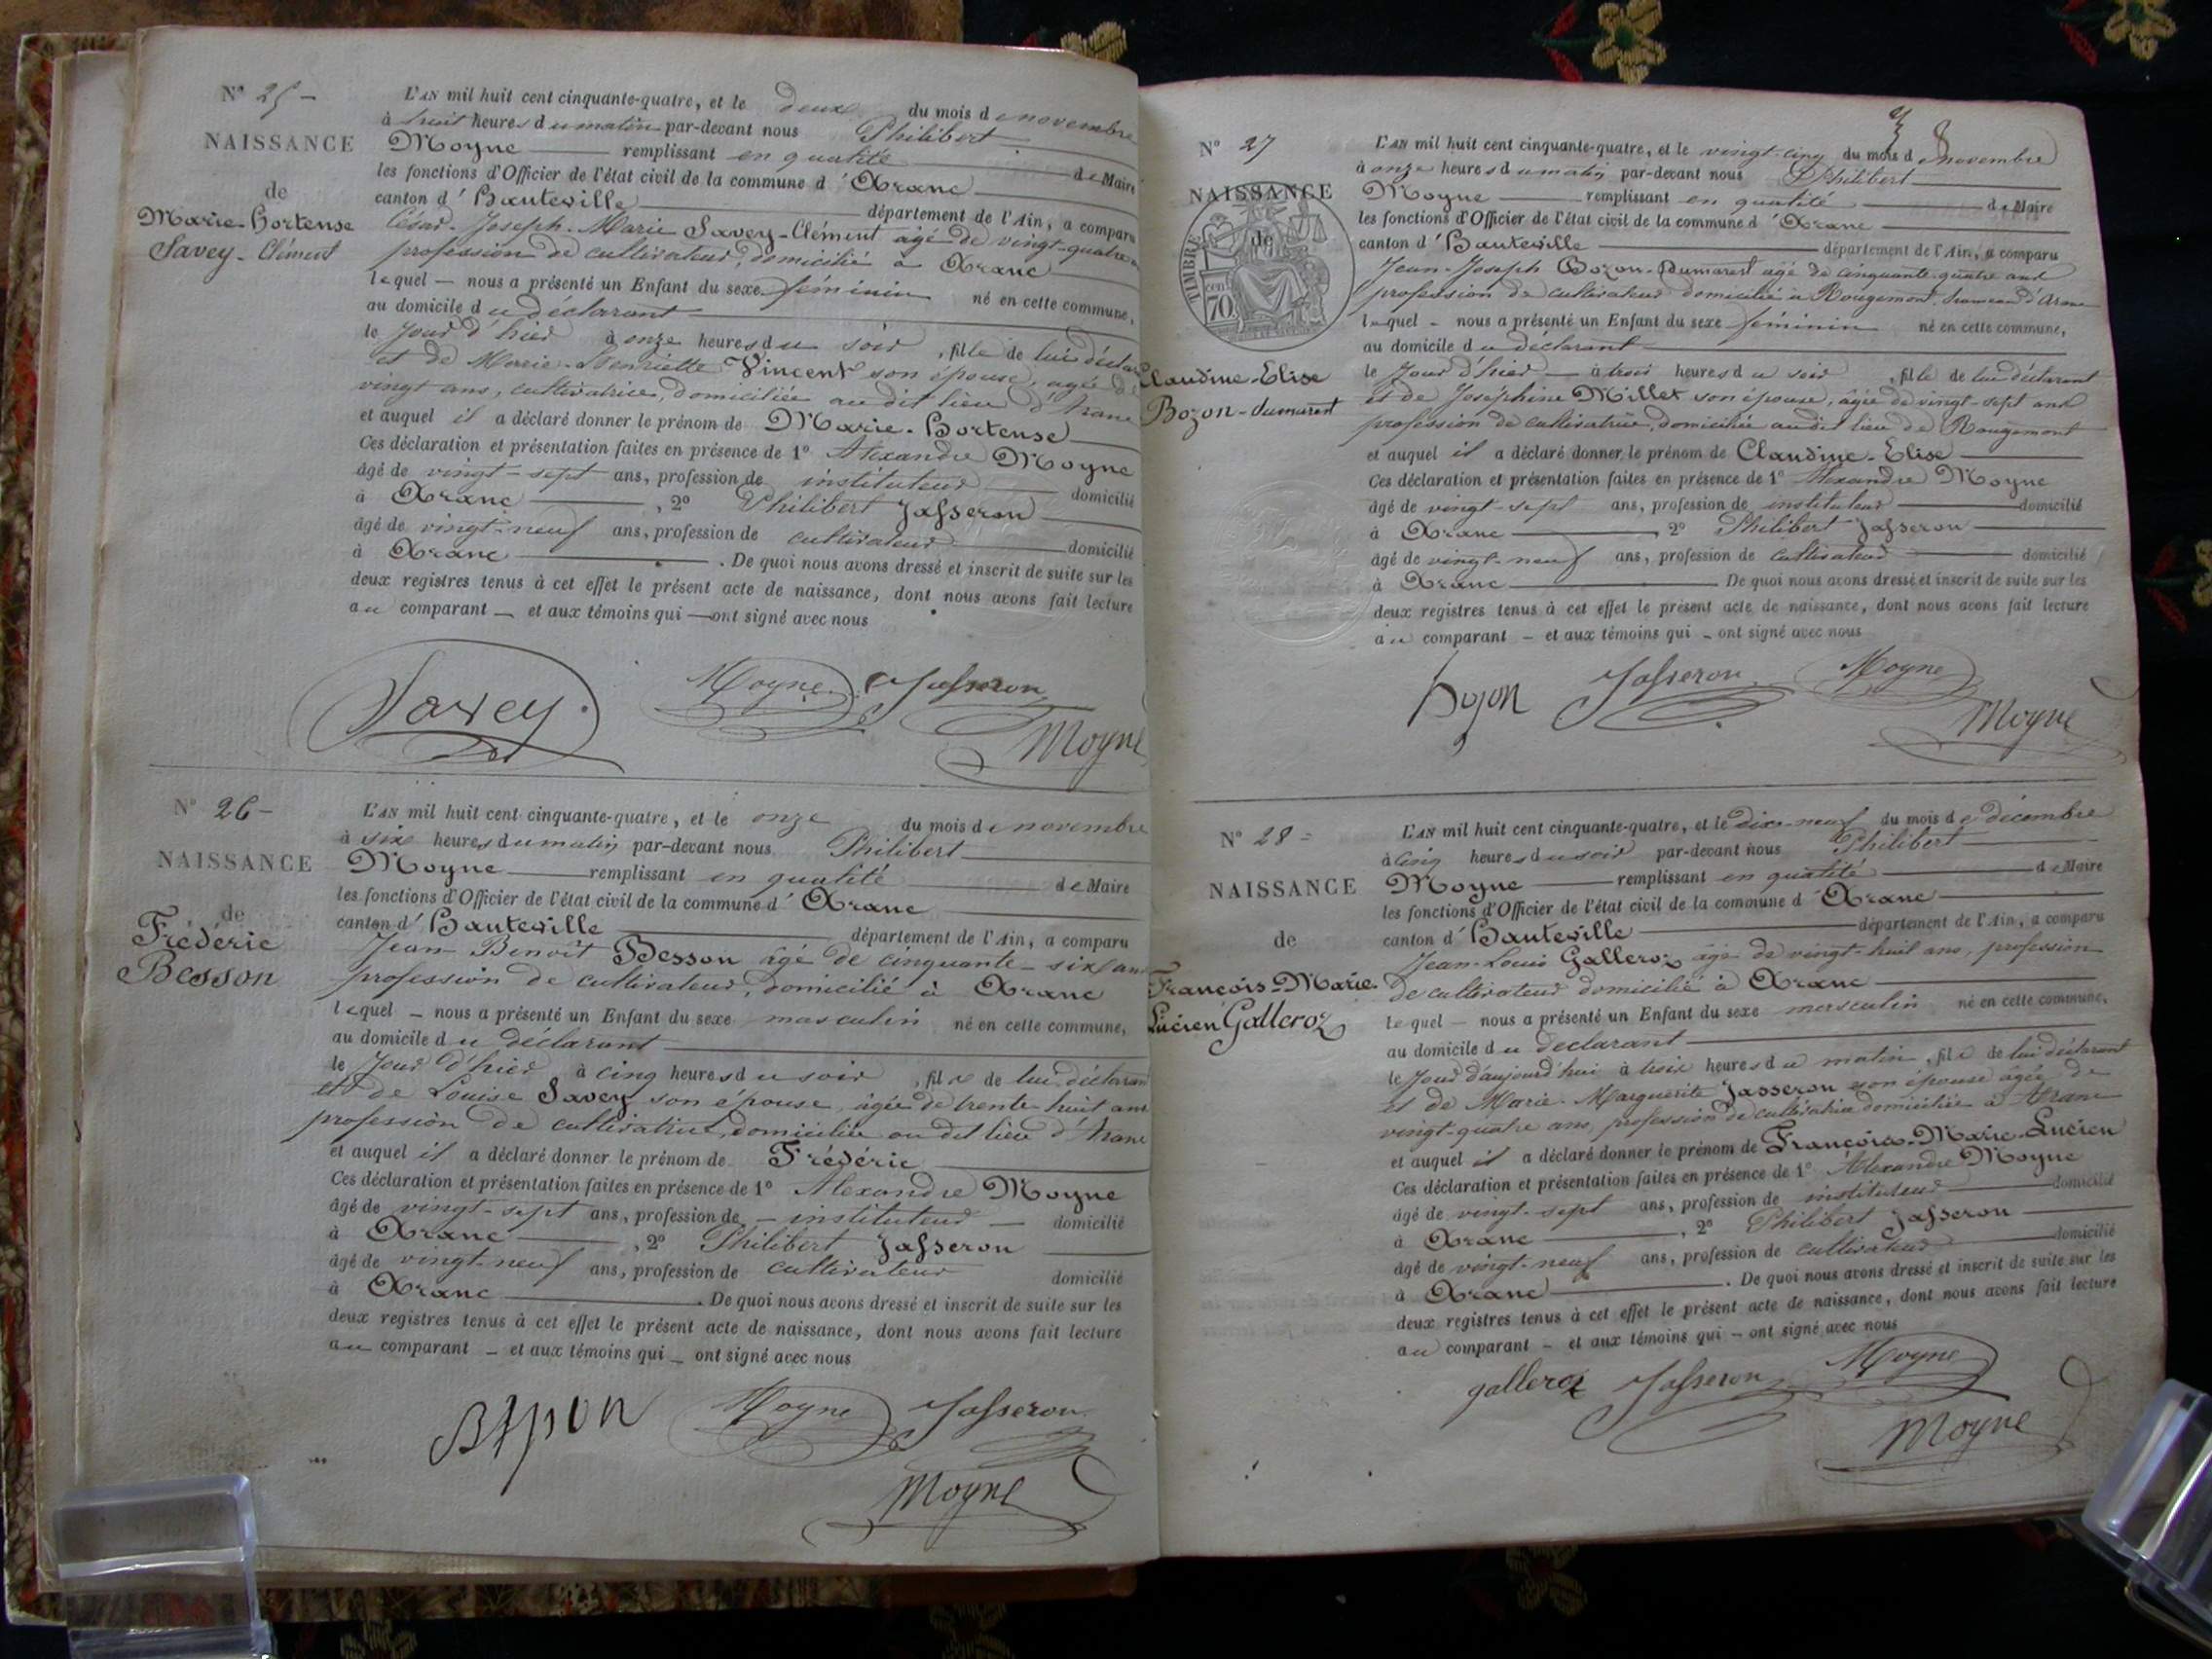 N° 25 –
NAISSANCE
de
Marie-Hortense
Savey-Clément
L'AN mil huit cent cinquante-quatre, et le deux du mois de novembre
à huit heures du matin par-devant nous Philibert
Moyne remplissant en qualité de Maire
les fonctions d'Officier de l'état civil de la commune d'Aranc
canton d'Hauteville département de l'Ain, a comparu
César-Joseph-Marie Savey-Clément âgé de vingt-quatre
profession de cultivateur, domicilié à Aranc
lequel – nous a présenté un Enfant du sexe féminin né en cette commune,
au domicile du déclarant
le jour d'hier à onze heures du soir, fille de lui déclarant
et de Marie-Henriette Vincent son épouse, agée de
vingt ans, cultivatrice, domiciliée au dit lieu d'Aranc
et auquel il a déclaré donner le prénom de Marie-Hortense
Ces déclaration et présentation faites en présence de 1° Alexandre Moyne
âgé de vingt-sept ans, profession de instituteur domicilié
à Aranc, 2° Philibert Jasseron
âgé de vingt-neuf ans, profession de cultivateur domicilié
à Aranc. De quoi nous avons dressé et inscrit de suite sur les
deux registres tenus à cet effet le présent acte de naissance, dont nous avons fait lecture
au comparant – et aux témoins qui – ont signé avec nous
Savey Moyne Jasseron
Moyne
N° 26 –
NAISSANCE
de
Frédéric
Besson
L'AN mil huit cent cinquante-quatre, et le onze du mois de novembre
à six heures du matin par-devant nous Philibert
Moyne remplissant en qualité de Maire
les fonctions d'Officier de l'état civil de la commune d'Aranc
canton d'Hauteville département de l'Ain, a comparu
Jean Benoît Besson âgé de cinquante-six ans
profession de cultivateur, domicilié à Aranc
lequel – nous a présenté un Enfant du sexe masculin né en cette commune,
au domicile du déclarant
le jour d'hier à cinq heures du soir, fils de lui déclarant
et de Louise Savey son épouse, âgée de trente-huit ans
profession de cultivatrice, domiciliée au dit lieu d'Aranc
et auquel il a déclaré donner le prénom de Frédéric
Ces déclaration et présentation faites en présence de 1° Alexandre Moyne
âgé de vingt-sept ans, profession de – instituteur – domicilié
à Aranc, 2° Philibert Jasseron
âgé de vingt-neuf ans, profession de cultivateur domicilié
à Aranc. De quoi nous avons dressé et inscrit de suite sur les
deux registres tenus à cet effet le présent acte de naissance, dont nous avons fait lecture
au comparant – et aux témoins qui – ont signé avec nous
Besson Moyne Jasseron
Moyne
N° 27
NAISSANCE
de
TIMBRE
70 cent
Claudine-Elise
Bozon-dumarest
L'AN mil huit cent cinquante-quatre, et le vingt-cinq du mois de novembre
à onze heures du matin par-devant nous Philibert
Moyne remplissant en qualité de Maire
les fonctions d'Officier de l'état civil de la commune d'Aranc
canton d'Hauteville département de l'Ain, a comparu
Jean-Joseph Bozon-Dumarest âgé de cinquante-quatre ans
profession de cultivateur domicilié à Rougemont, hameau d'Aranc
lequel – nous a présenté un Enfant du sexe féminin né en cette commune,
au domicile du déclarant
le jour d'hier à trois heures du soir, fille de lui déclarant
et de Joséphine Millet son épouse, âgée de vingt-sept ans
profession de cultivatrice, domiciliée audit lieu de Rougemont
et auquel il a déclaré donner le prénom de Claudine-Elise
Ces déclaration et présentation faites en présence de 1° Alexandre Moyne
âgé de vingt-sept ans, profession de instituteur domicilié
à Aranc, 2° Philibert Jasseron
âgé de vingt-neuf ans, profession de cultivateur domicilié
à Aranc De quoi nous avons dressé et inscrit de suite sur les
deux registres tenus à cet effet le présent acte de naissance, dont nous avons fait lecture
au comparant – et aux témoins qui – ont signé avec nous
Bozon Jasseron Moyne
Moyne
N° 28 =
NAISSANCE
de
François-Marie-
Lucien Galleroz
L'AN mil huit cent cinquante-quatre, et le dix-neuf du mois de décembre
à cinq heures du soir par-devant nous Philibert
Moyne remplissant en qualité de Maire
les fonctions d'Officier de l'état civil de la commune d'Aranc
canton d'Hauteville département de l'Ain, a comparu
Jean-Louis Galleroz âgé de vingt-huit ans, profession
de cultivateur domicilié à Aranc
lequel – nous a présenté un Enfant du sexe masculin né en cette commune,
au domicile du déclarant
le jour d'aujourd'hui à trois heures du matin, fils de lui déclarant
et de Marie-Marguerite Jasseron son épouse âgée de
vingt-quatre ans, profession de cultivatrice domiciliée à Aranc
et auquel il a déclaré donner le prénom de François-Marie-Lucien
Ces déclaration et présentation faites en présence de 1° Alexandre Moyne
âgé de vingt-sept ans, profession de instituteur domicilié
à Aranc, 2° Philibert Jasseron
âgé de vingt-neuf ans, profession de cultivateur domicilié
à Aranc. De quoi nous avons dressé et inscrit de suite sur les
deux registres tenus à cet effet le présent acte de naissance, dont nous avons fait lecture
au comparant – et aux témoins qui – ont signé avec nous
galleroz Jasseron Moyne
Moyne